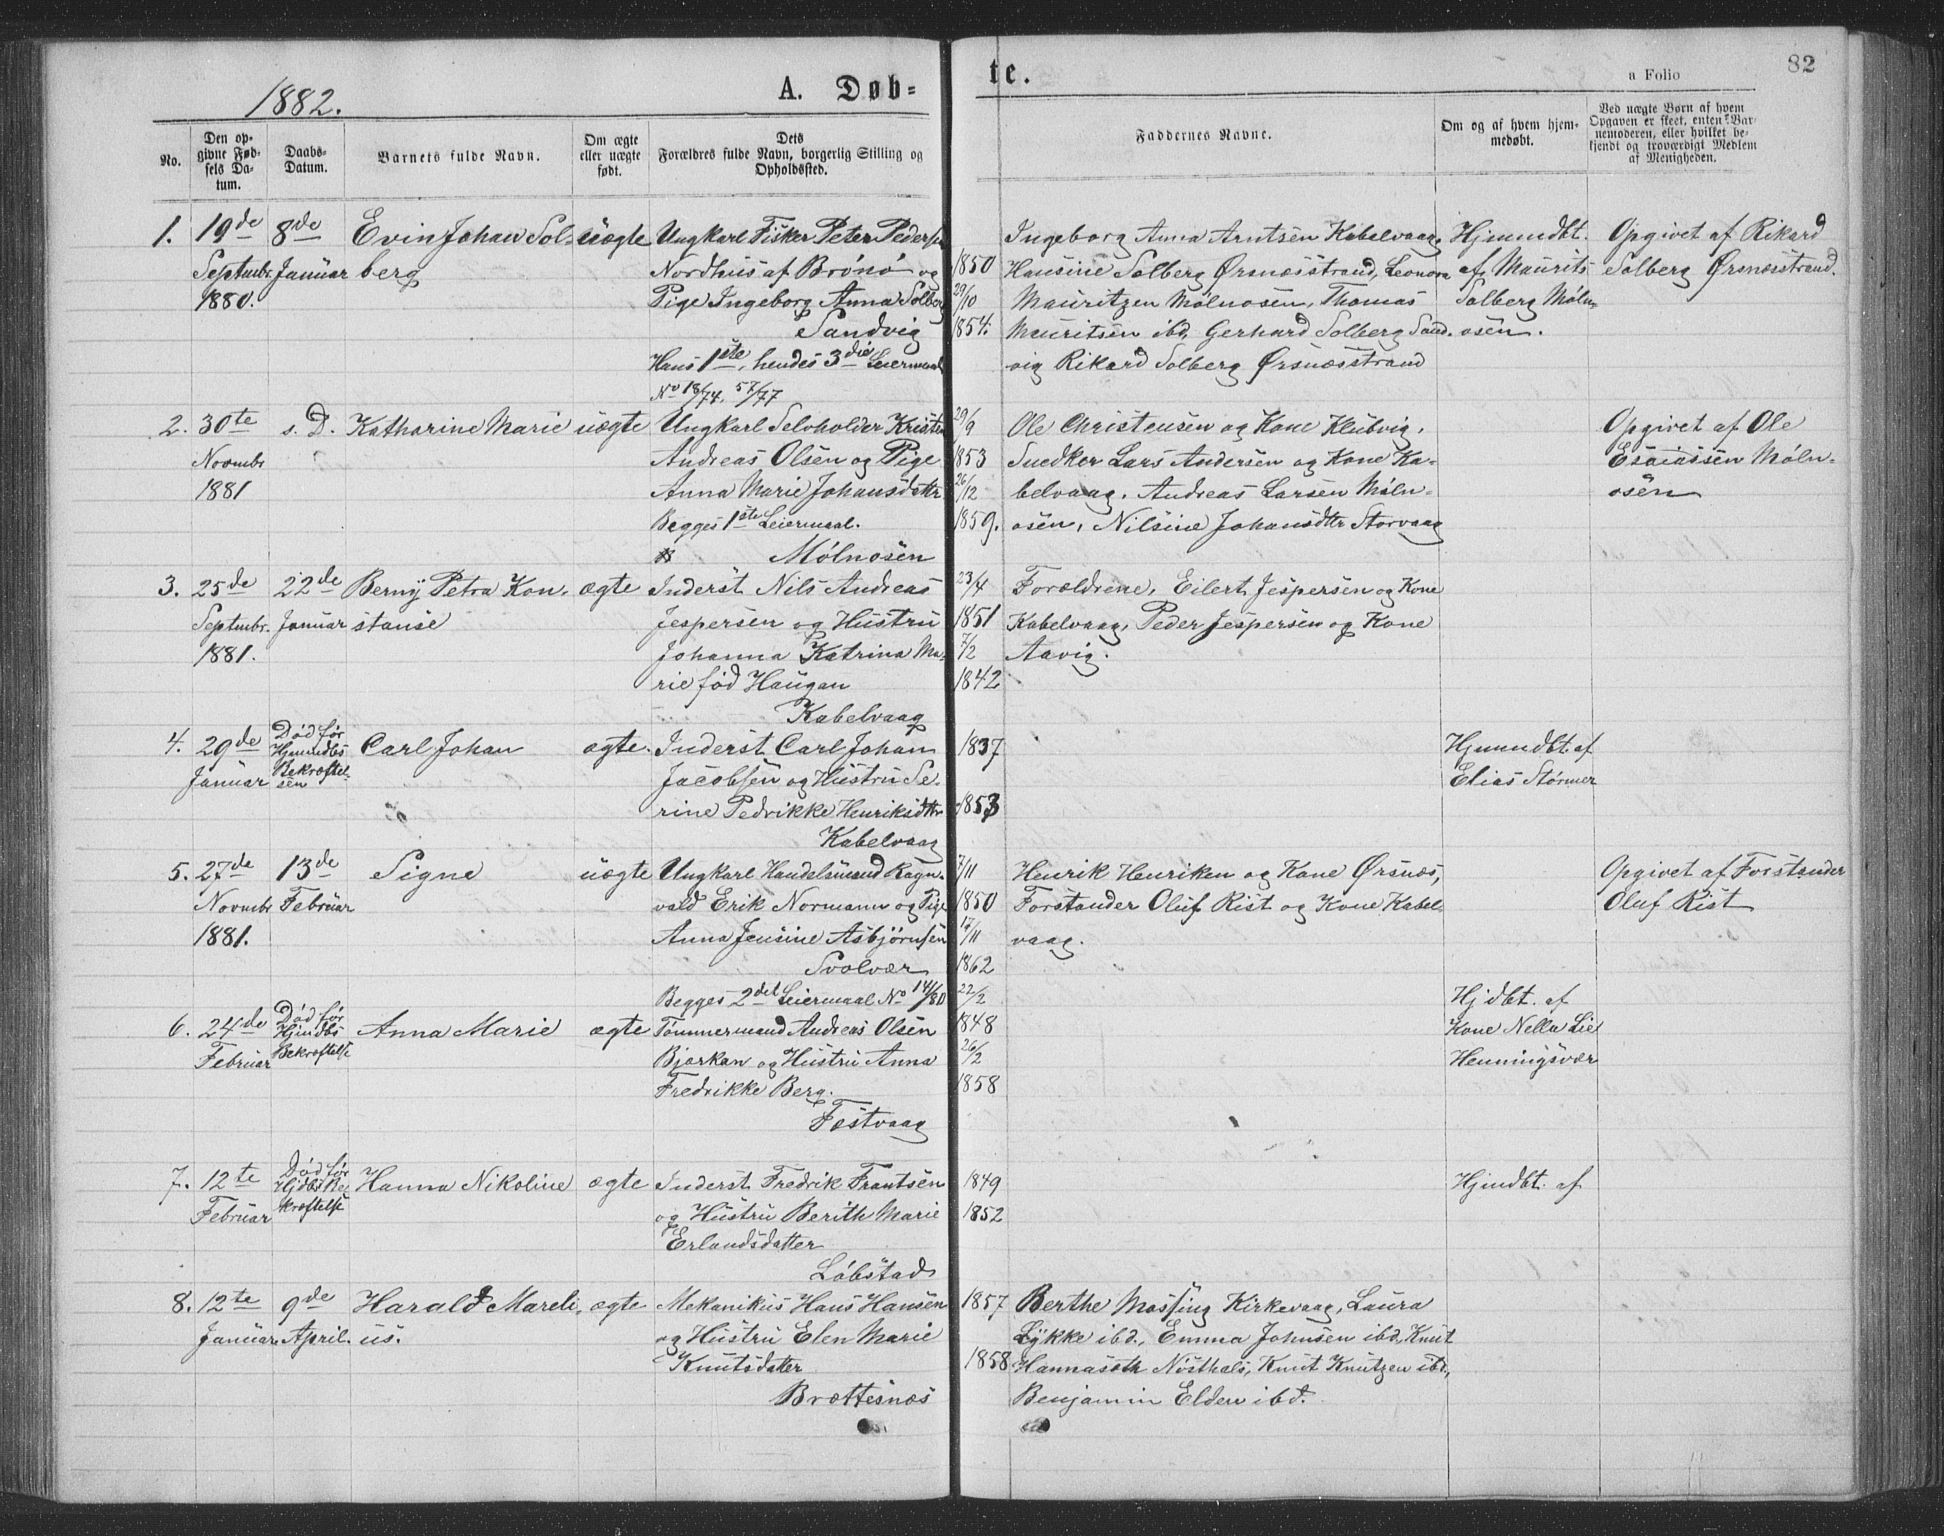 1882. A. Døb= te. a Folio 82
No.
Den op-
givne Fød-
sels Da-
tum.
Daabs-
Datum.
Barnets fulde Navn.
Om ægte
eller uægte
født.
Dets
Forældres fulde Navn, borgerlig Stilling og
Opholdssted.
Faddernes Navne.
Om og af hvem hjem-
medøbt.
Ved uægte Børn af hvem
Opgaven er skeet, enten Bar-
nemoderen, eller hvilket be-
kjendt og troværdigt Medlem
af Menigheden.
1. 19de
Septmbr.
1880.
8de
Januar
Evin Johan Sol-
berg
uægte
Ungkarl Fisker Peter Pedersen
Nordhus af Brønø og
Pige Ingeborg Anna Solberg
Sandvig
Hans 1ste, hendes 3die Leiermaal
No 18/74. 57/77
1850
29/10
1854.
Ingeborg Anna Arntsen Kabelvaag,
Hansine Solberg Ørsnæsstrand, Leonora
Mauritzen Mølnosen, Thomas
Mauritsen ibd, Gerhard Solberg Sand-
vig Rikard Solberg Ørsnæsstrand
Hjmmdbt.
af Maurits
Solberg Møln-
osen.
Opgivet af Rikard
Solberg Ørsnæsstrand.
2. 30te
Novmbr
1881
s. D.
Katharine Marie
uægte
Ungkarl Selvholder Kristen
Andreas Olsen og Pige
Anna Marie Johansdattr
Begges 1ste Leiermaal.
Mølnosen
29/9
1853
26/12
1859.
Ole Christensen og Kone Klubvig,
Snedker Lars Andersen og Kone Ka-
belvaag, Andreas Larsen Møln-
osen, Nilsine Johansdttr Storvaag
Opgivet af Ole
Esaiassen Møln-
osen
3. 25de
Septmbr.
1881.
22de
Januar
Berny Petra Kon-
stanse
ægte
Inderst Nils Andreas
Jespersen og Hustru
Johanna Katrina Ma-
rie fød Haugan
Kabelvaag
23/4
1851
7/2
1842
Forældrene, Eilert Jespersen og Kone
Kabelvaag, Peder Jespersen og Kone
Aavig.
4. 29de
Januar
Død før
Hjmmdbs
Bekræftel-
sen
Carl Johan
ægte.
Inderst Carl Johan
Jacobsen og Hustru Se-
rine Pedrikke Henriksdttr
Kabelvaag
1837
1853
Hjmmdbt. af
Elias Størmer
5. 27de
Novmbr
1881.
13de
Februar
Signe
uægte
Ungkarl Handelsmand Ragn-
vald Erik Normann og Pige
Anna Jensine Asbjørnsen
Svolvær
Begges 2det Leiermaal No 141/80
7/11
1850
17/11
1862
Henrik Henriken og Kone Ørsnæs,
Forstander Oluf Rist og Kone Kabel-
vaag.
Opgivet af Forstander
Oluf Rist
6. 24de
Februar
Død før
Hjmdbs
Bekræftelse
Anna Marie
ægte
Tømmermand Andreas Olsen
Bjørkan og Hustru Anna
Fredrikke Berg.
Festvaag
22/2
1848
26/2
1858
Hjdbt. af
Kone Nella Lie
Henningsvær
7. 12te
Februar
Død før
Hjdbs Be-
kræftelse
Hanna Nikoline
ægte
Inderst Fredrik Frantsen
og Hustru Berith Marie
Erlandsdatter
Løbstad
1849
1852
Hjmdbt. af
8. 12te
Januar
9de
April.
Harald Mareli-
us.
ægte
Mekanikus Hans Hansen
og Hustru Elen Marie
Knutsdatter
Brættesnæs
1857
1858
Berthe Massing Kirkevaag, Laura
Lykke ibd., Emma Johnsen ibd, Knut
Hannasoth Nøsthals, Knut Knutzen ibd,
Benjamin Elden ibd.